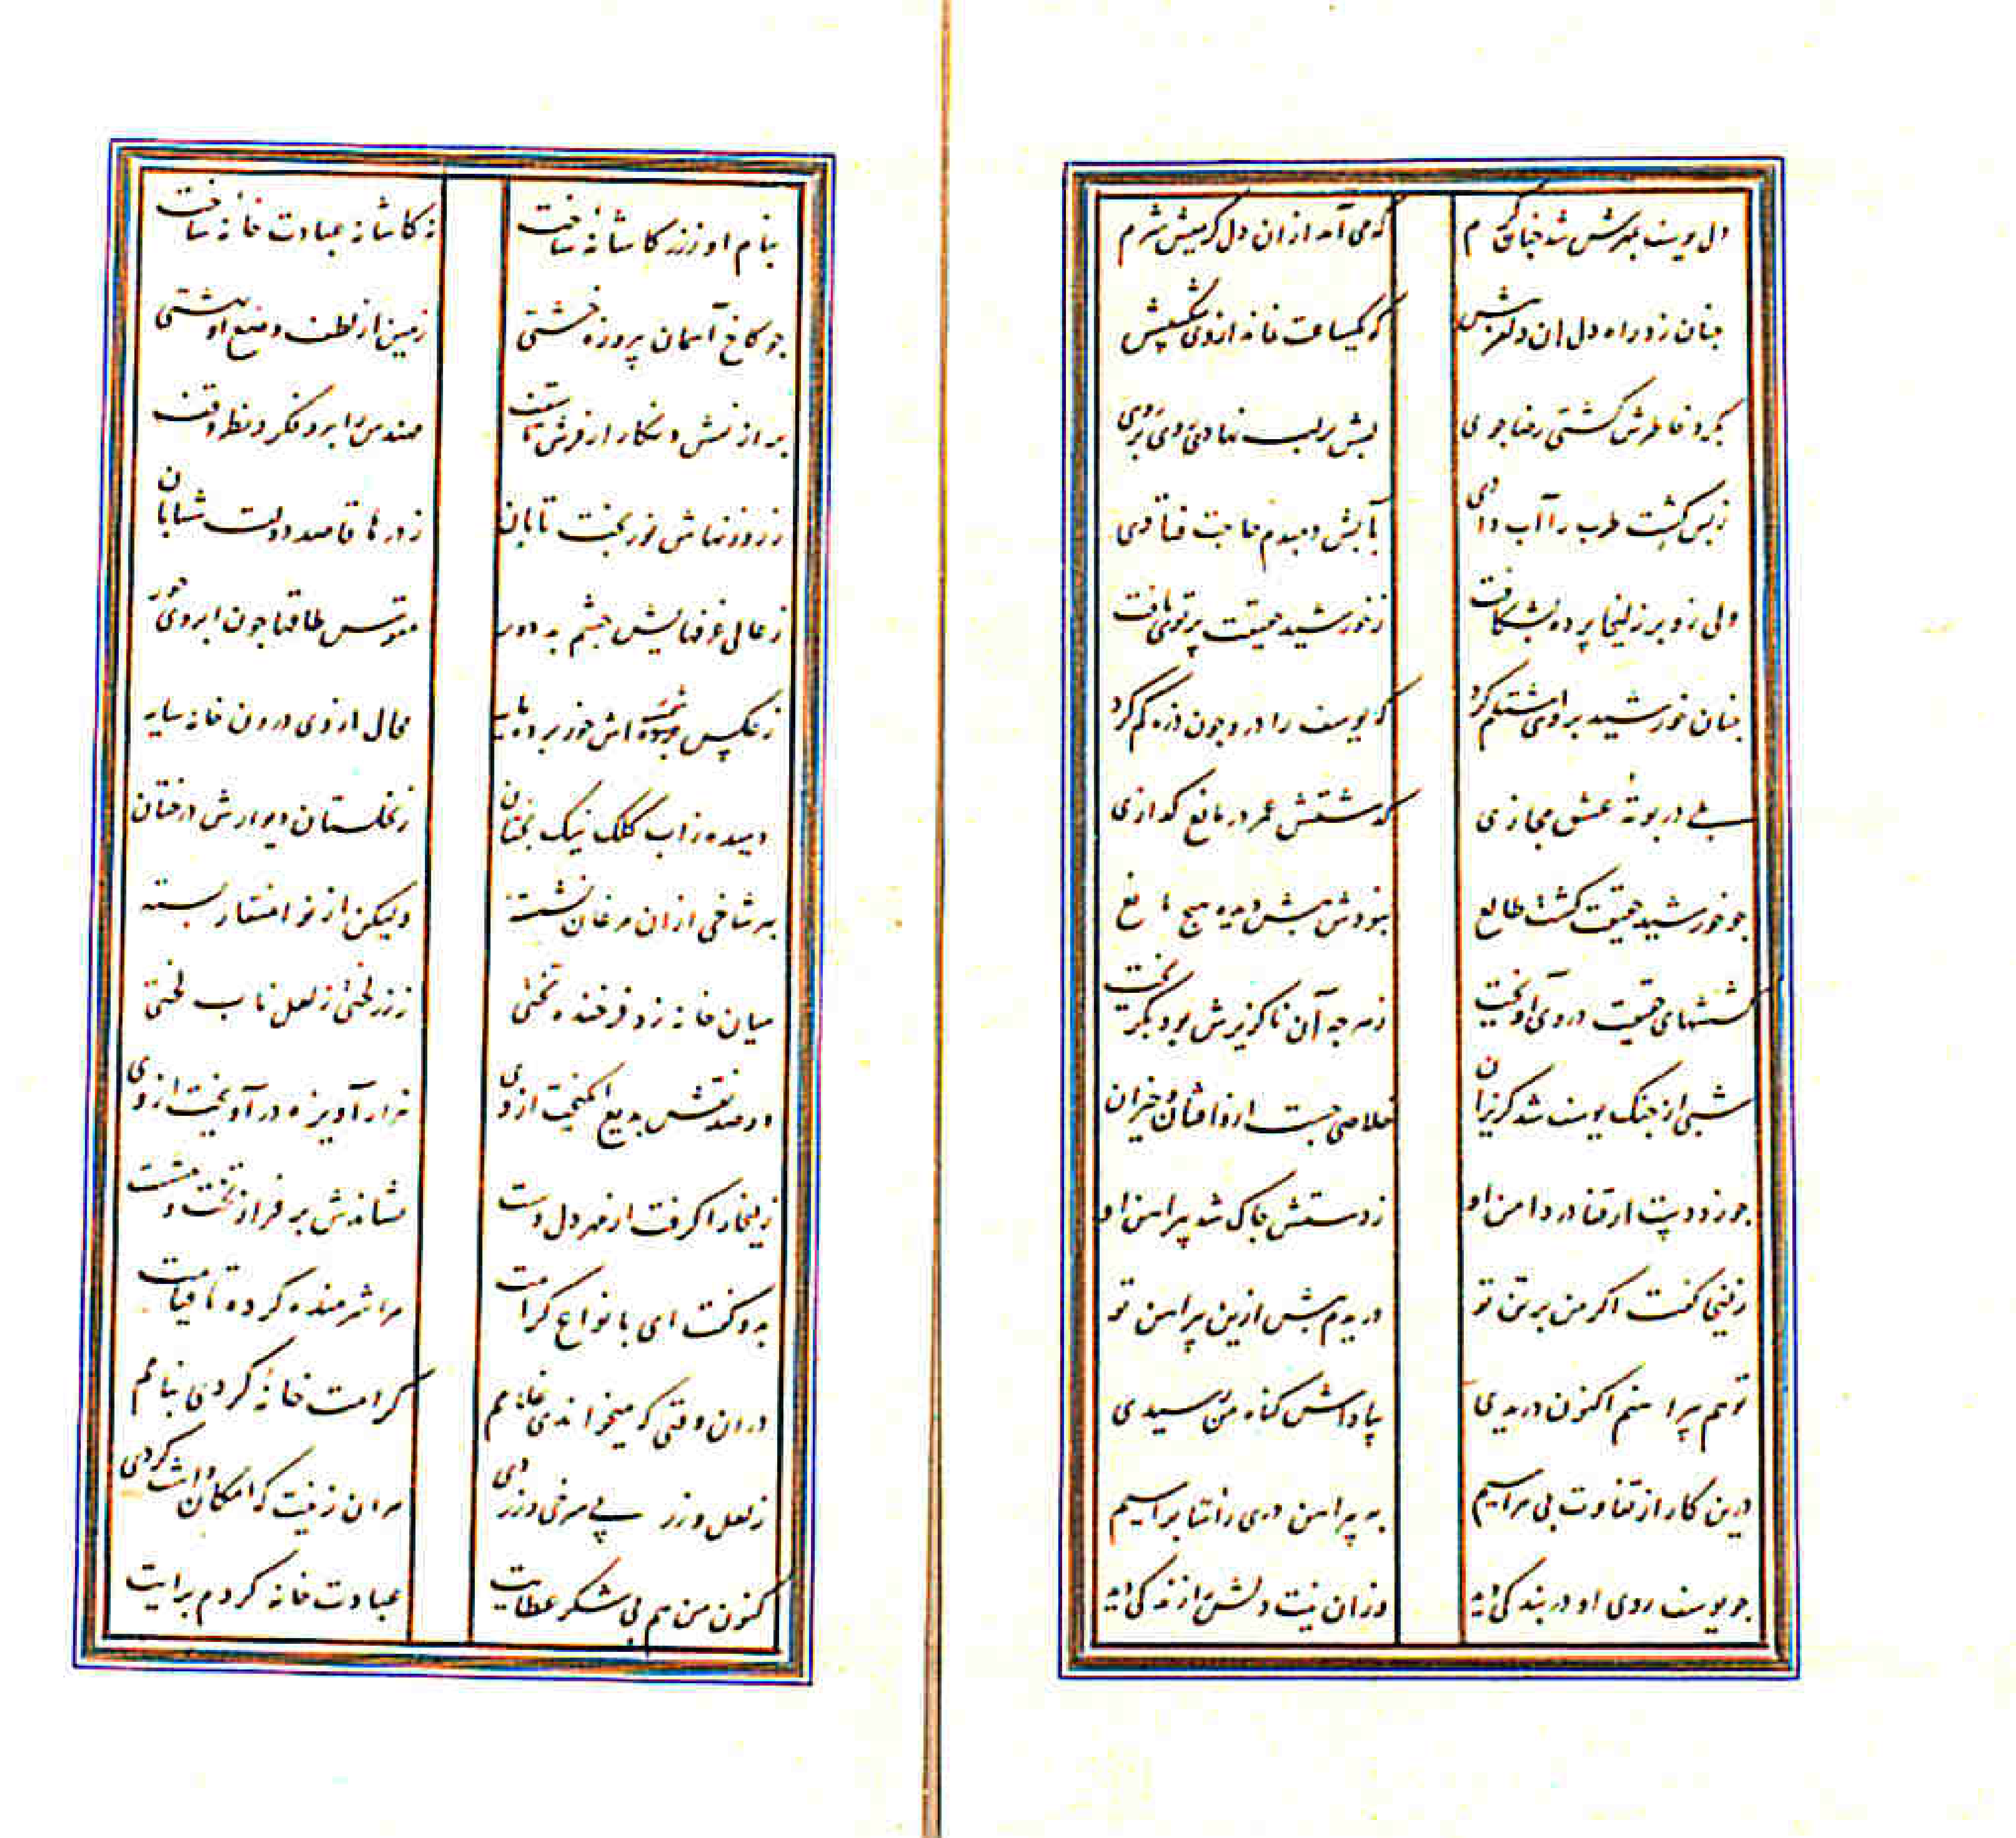 دل یوسف بمهرش شد چنان گرم که می آمد ازان دل گرمیش شرم
چنان زد راه دل ان دلفریبش که یکساعت نماند از وی شکیبش
بگرد خاطرش گشتی رضاجوی لبش بر لب نهادی روی بر روی
ز بس کشت طرب را آب دادی بآبش دمبدم حاجت فتادی
ولی زو بر زلیخا پرده بشکافت ز خورشید حقیقت پرتوی یافت
چنان خورشید بر وی اشتلم کرد که یوسف را درو چون ذره گم کرد
بلی در بوتهٔ عشق مجازی گذشتش عمر در مانع گدازی
چو خورشید حقیقت گشت طالع نبودش پیش دیده هیچ مانع
کششهای حقیقت در وی آویخت ز هرچه آن ناگزیرش بود بگریخت
شبی از چنگ یوسف شد گریزان خلاصی جست ازو افتان و خیزان
چو زد دست از قفا در دامن او ز دستش چاک شد پیراهن او
زلیخا گفت اگر من بر تن تو دریدم پیش ازین پیراهن تو
تو هم پیراهنم اکنون دریدی پاداش گناه من رسیدی
درین کار از تفاوت بی هراسیم به پیراهن دری راسا براسیم
چو یوسف روی او در بندگی دید وزان نیت دلش را زندگی دید
بنام او ز زر کاشانهٔ ساخت نه کاشانه عبادت خانهٔ ساخت
چو کاخ آسمان پروزه خشتی زمین از لطف وضع او بهشتی
پر از نقش و نگار از فرش تا سقف مهندس را برو فکر و نظر وقف
ز روزنهاش نور بخت تابان ز درها قاصد دولت شتابان
ز عالی غرفهایش چشم بد دور مقوس طاقها چون ابروی حور
ز عکس شمسه اش خور برده مایه محال از وی درون خانه سایه
دمیده ز اب کلک نیک بختان ز نخلستان دیوارش درختان
بهر شاخی ازان مرغان نشسته ولیکن از نوا منقار بسته
میان خانه زد فرخنده تختی ز زر لختی ز لعل ناب لختی
دو صد نقش بدیع انگیخت از وی هزار آویزه در آویخت از وی
زلیخا را گرفت از مهر دل دست نشاندش بر فراز تخت و بنشست
بدو گفت ای بانواع کرامت مرا شرمنده کرده تا قیامت
دران وقتی که میخواندی غلامم کرامت خانهٔ کردی بنامم
ز لعل و زر پی سرخی و زردی هر ان زینت که امکان داشت کردی
کنون من هم پی شکر عطایت عبادت خانه کردم برایت